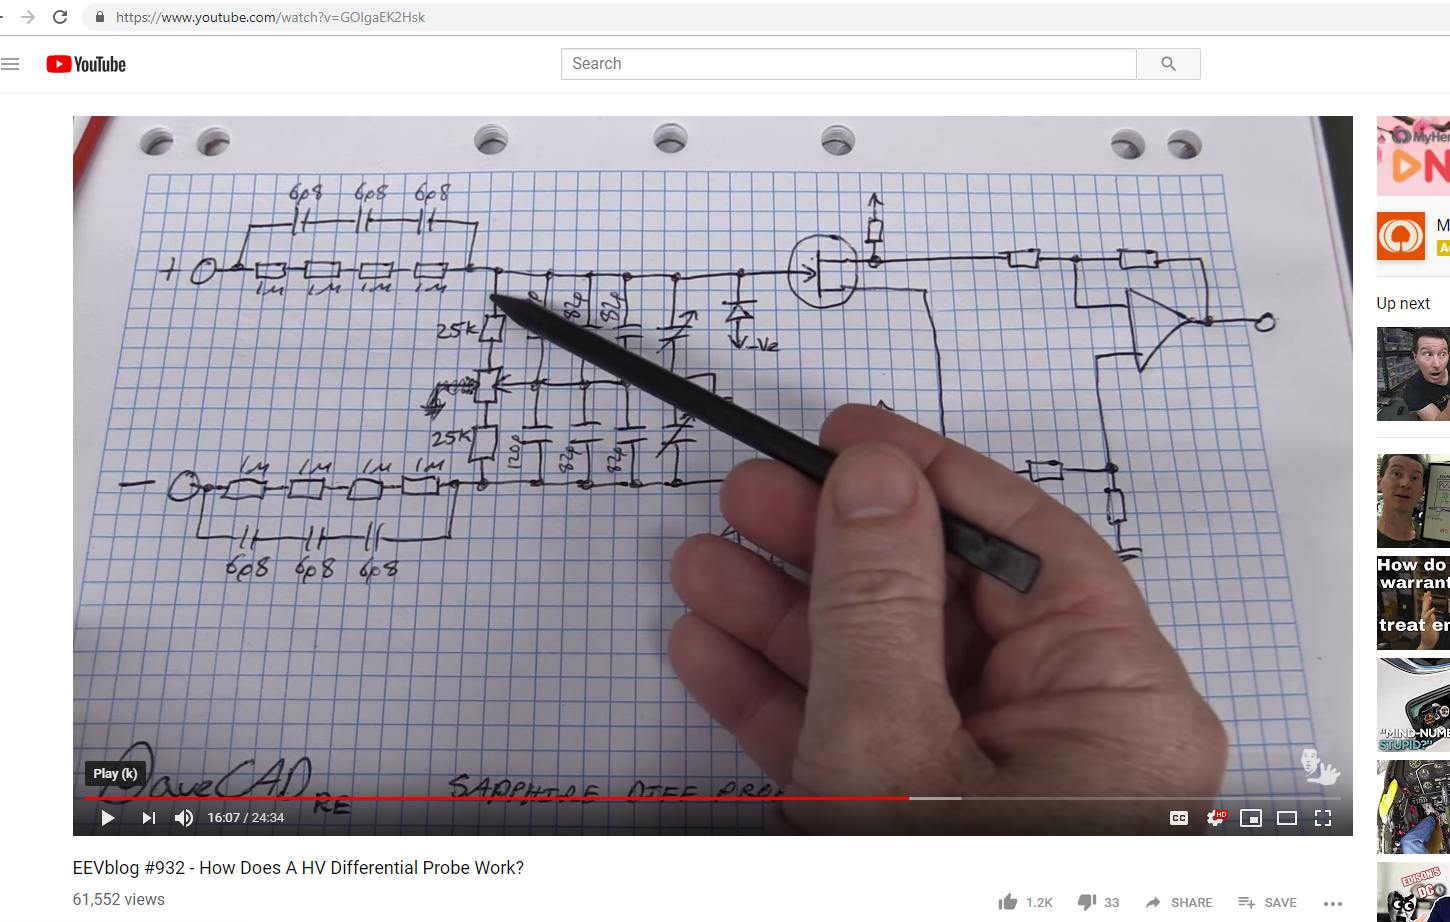 https://www.youtube.com/watch?v=GOIgaEK2Hsk
YouTube
Search
6p8 6p8 6p8
+
1M 1M 1M 1M
82p 82p
25K
-Ve
25K
120p 82p 82p
1M 1M 1M 1M
6p8 6p8 6p8
DaveCAD
RE
SAPPHIRE DIFF PRO
Play (k)
16:07 / 24:34
CC
HD
EEVblog #932 - How Does A HV Differential Probe Work?
61,552 views
1.2K
33
SHARE
SAVE
MyHer
DN
M
A
Up next
How do
warrant
treat er
"MIND-NUME
STUPID?"
EDISON'S
DC